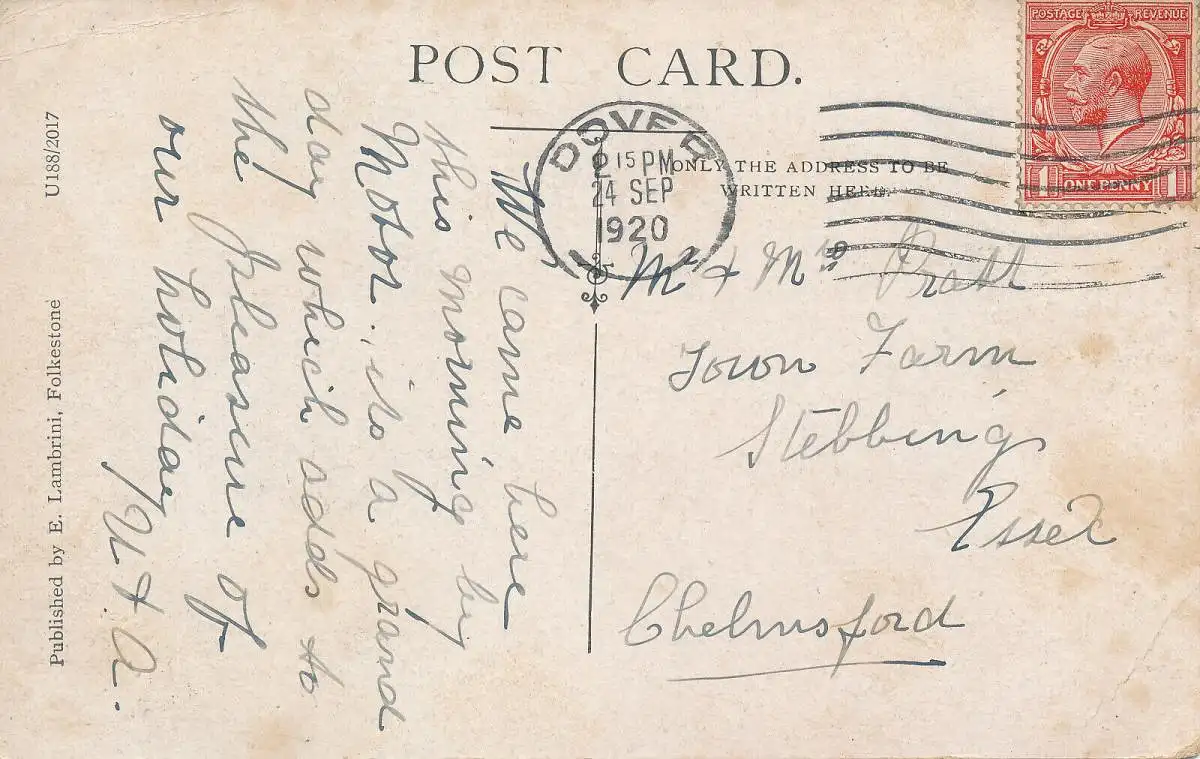 POST CARD.
POSTAGE REVENUE
1 ONE PENNY 1
DOVER
2 15 PM
24 SEP
1920
ONLY THE ADDRESS TO BE
WRITTEN HERE.
We came here
this morning by
Motor, its a grand
day which adds to
the pleasure of
our holiday
Mr & Mrs Pratt
Town Farm
Stebbing
Essex
Chelmsford
U188/2017
Published by E. Lambrini, Folkestone